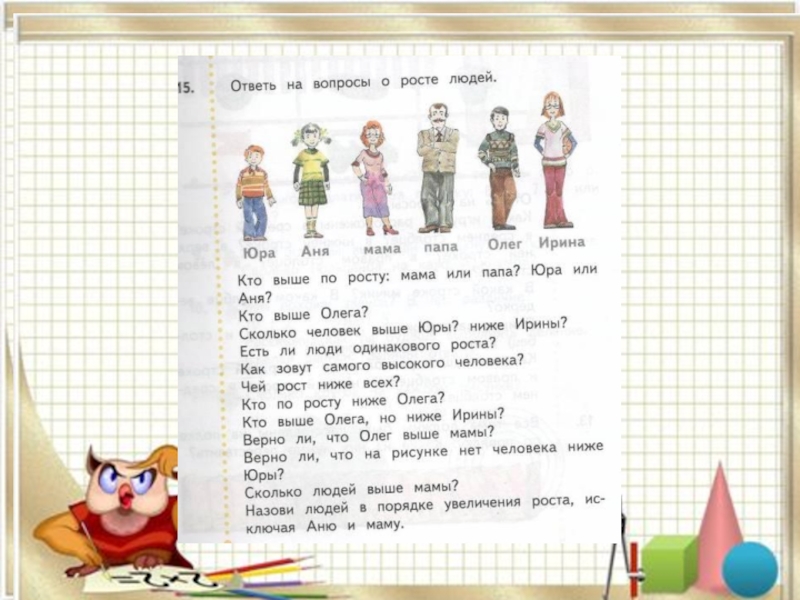 15. Ответь на вопросы о росте людей.
Юра Аня мама папа Олег Ирина
Кто выше по росту: мама или папа? Юра или
Аня?
Кто выше Олега?
Сколько человек выше Юры? ниже Ирины?
Есть ли люди одинакового роста?
Как зовут самого высокого человека?
Чей рост ниже всех?
Кто по росту ниже Олега?
Кто выше Олега, но ниже Ирины?
Верно ли, что Олег выше мамы?
Верно ли, что на рисунке нет человека ниже
Юры?
Сколько людей выше мамы?
Назови людей в порядке увеличения роста, ис-
ключая Аню и маму.